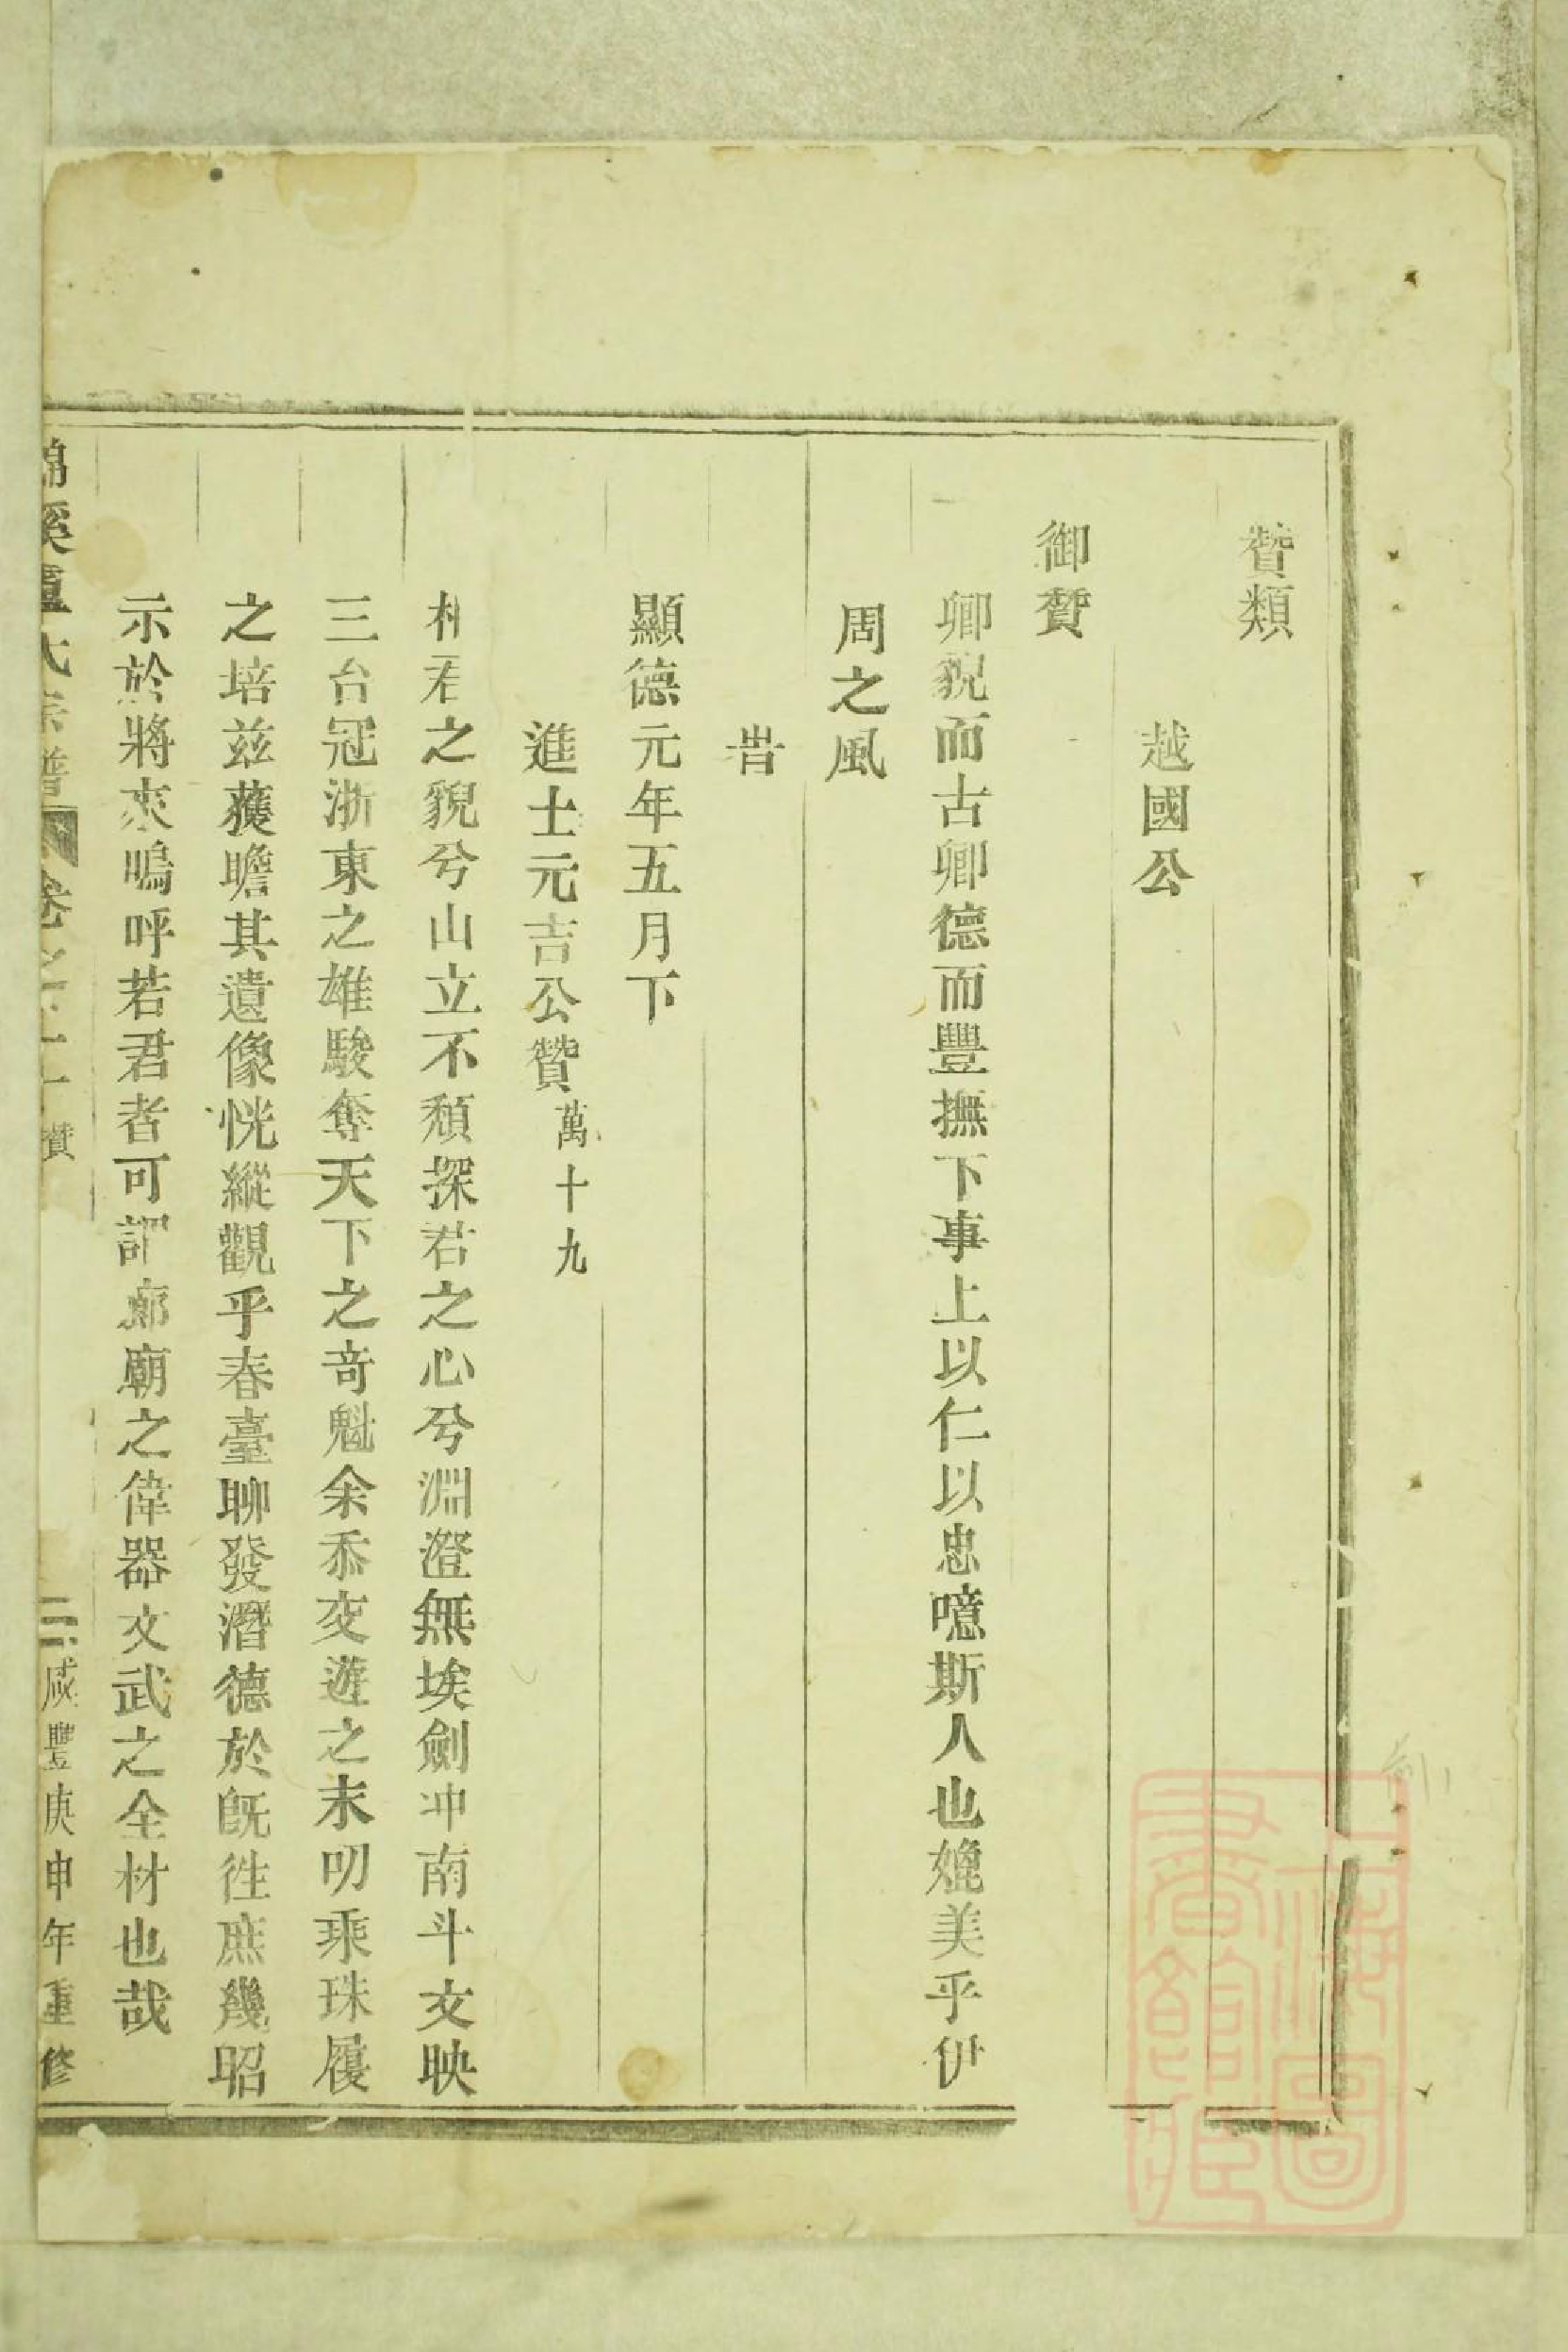 贊類
越國公
御贊
卿貌而古卿德而豐撫下事上以仁以忠噫斯人也媲美乎伊
周之風
旹
顯德元年五月下
進士元吉公贊萬十九
相君之貌兮山立不頹探君之心兮淵澄無埃劍冲南斗文映
三台冠浙東之雄駿奪天下之奇魁余忝交遊之末叨乘珠履
之培兹獲瞻其遺像恍縱觀乎春臺聊發潛德於既徃庶幾昭
示於將來嗚呼若君者可謂廊廟之偉器文武之全材也哉
溪 大宗譜 卷之 贊 二 咸豐庚申年重修
上海圖書館藏